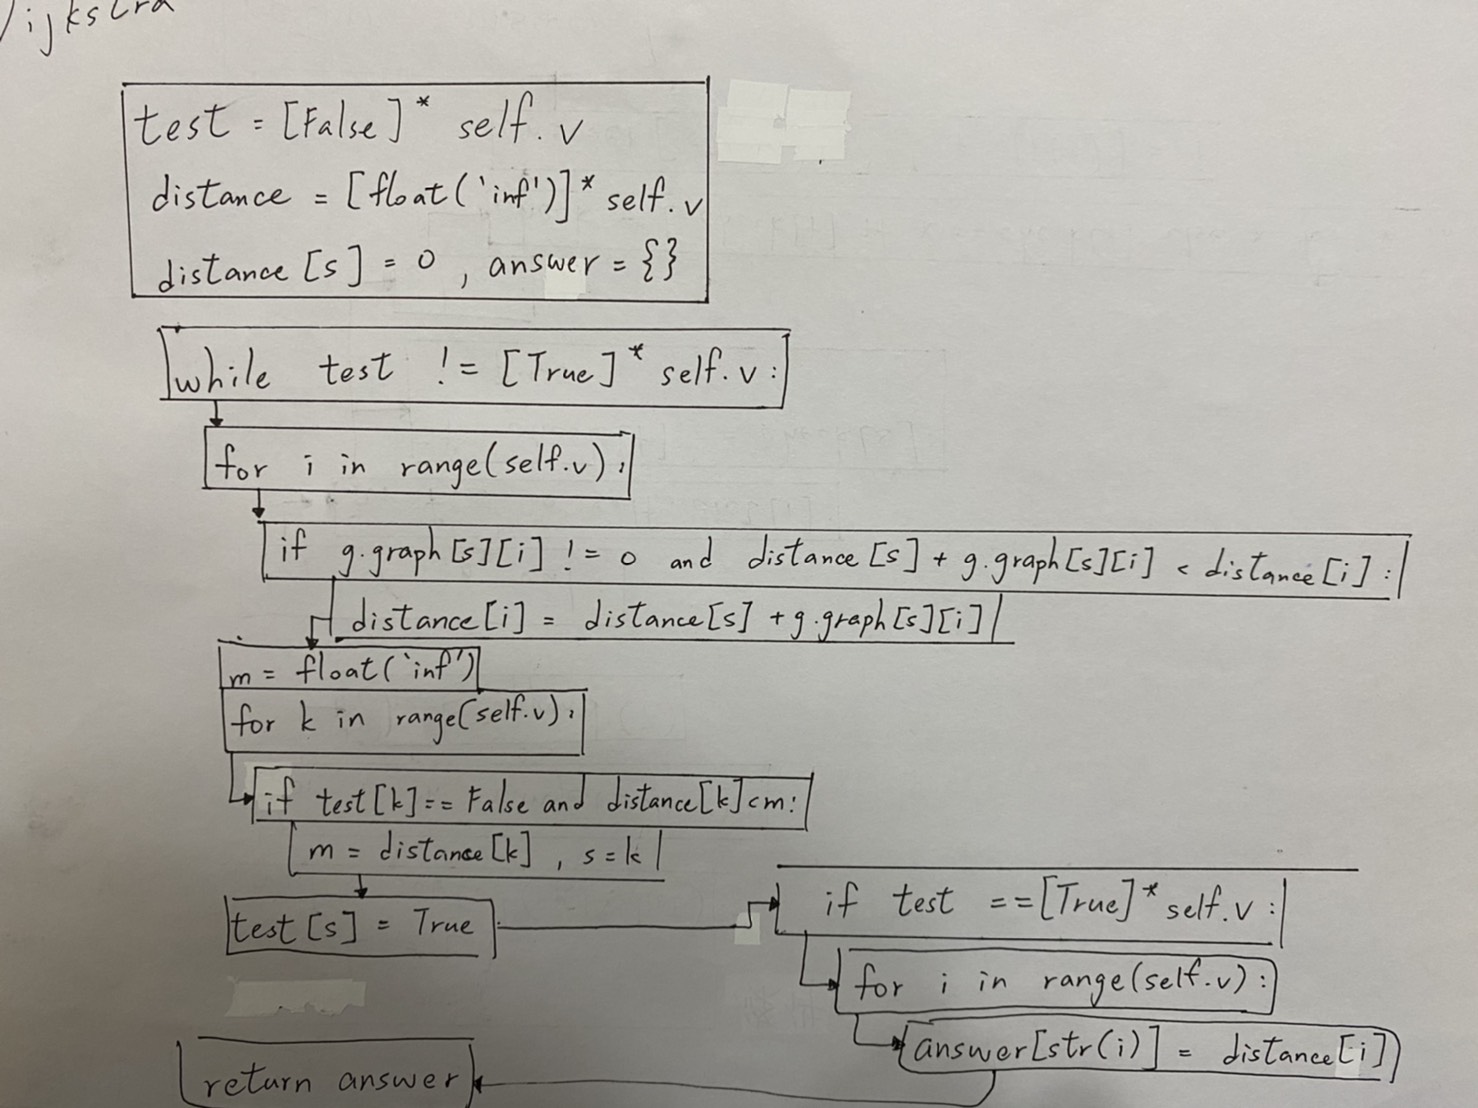 Dijkstra
test = [False] * self.v
distance = [float('inf')] * self.v
distance [s] = 0 , answer = {}
while test != [True] * self.v :
for i in range(self.v) :
if g.graph[s][i] != 0 and distance[s] + g.graph[s][i] < distance[i] :
distance[i] = distance[s] + g.graph[s][i]
m = float('inf')
for k in range(self.v) :
if test[k] == False and distance[k] < m :
m = distance[k] , s = k
test[s] = True
if test == [True] * self.v :
for i in range(self.v) :
answer[str(i)] = distance[i]
return answer